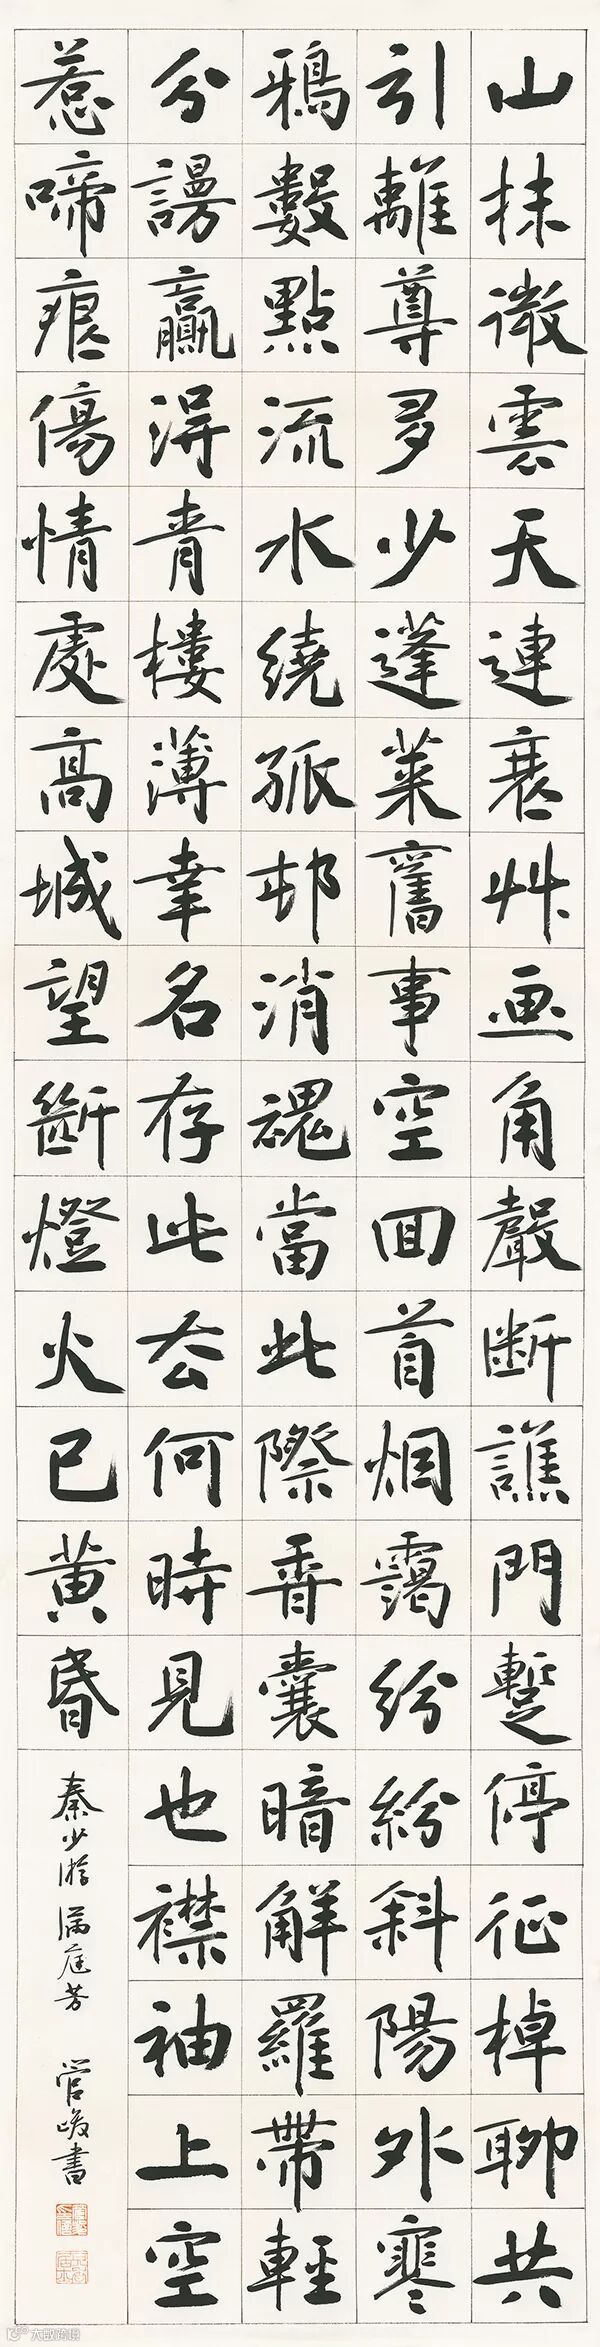 山抹微雲天連衰艸画角聲断譙門蹔停征棹聊共
引離尊多少蓬萊舊事空囬首烟靄紛紛斜陽外寒
鴉數點流水繞孤邨消魂當此際香囊暗解羅帶輕
分謾贏得青樓薄幸名存此去何時見也襟袖上空
惹啼痕傷情處高城望斷燈火已黄昏
秦少游滿庭芳 管峻書